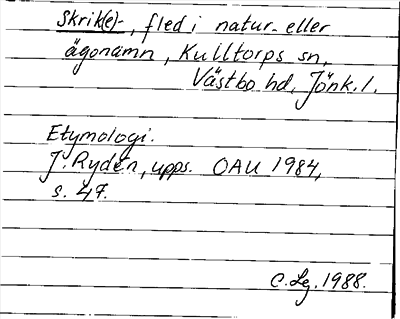 Skrik(e)-, fled i natur- eller
ägonamn, Kulltorps sn,
Västbo hd, Jönk. l.
Etymologi.
J. Rydén, upps. OAU 1984,
s. 47.
C. Lg. 1988.